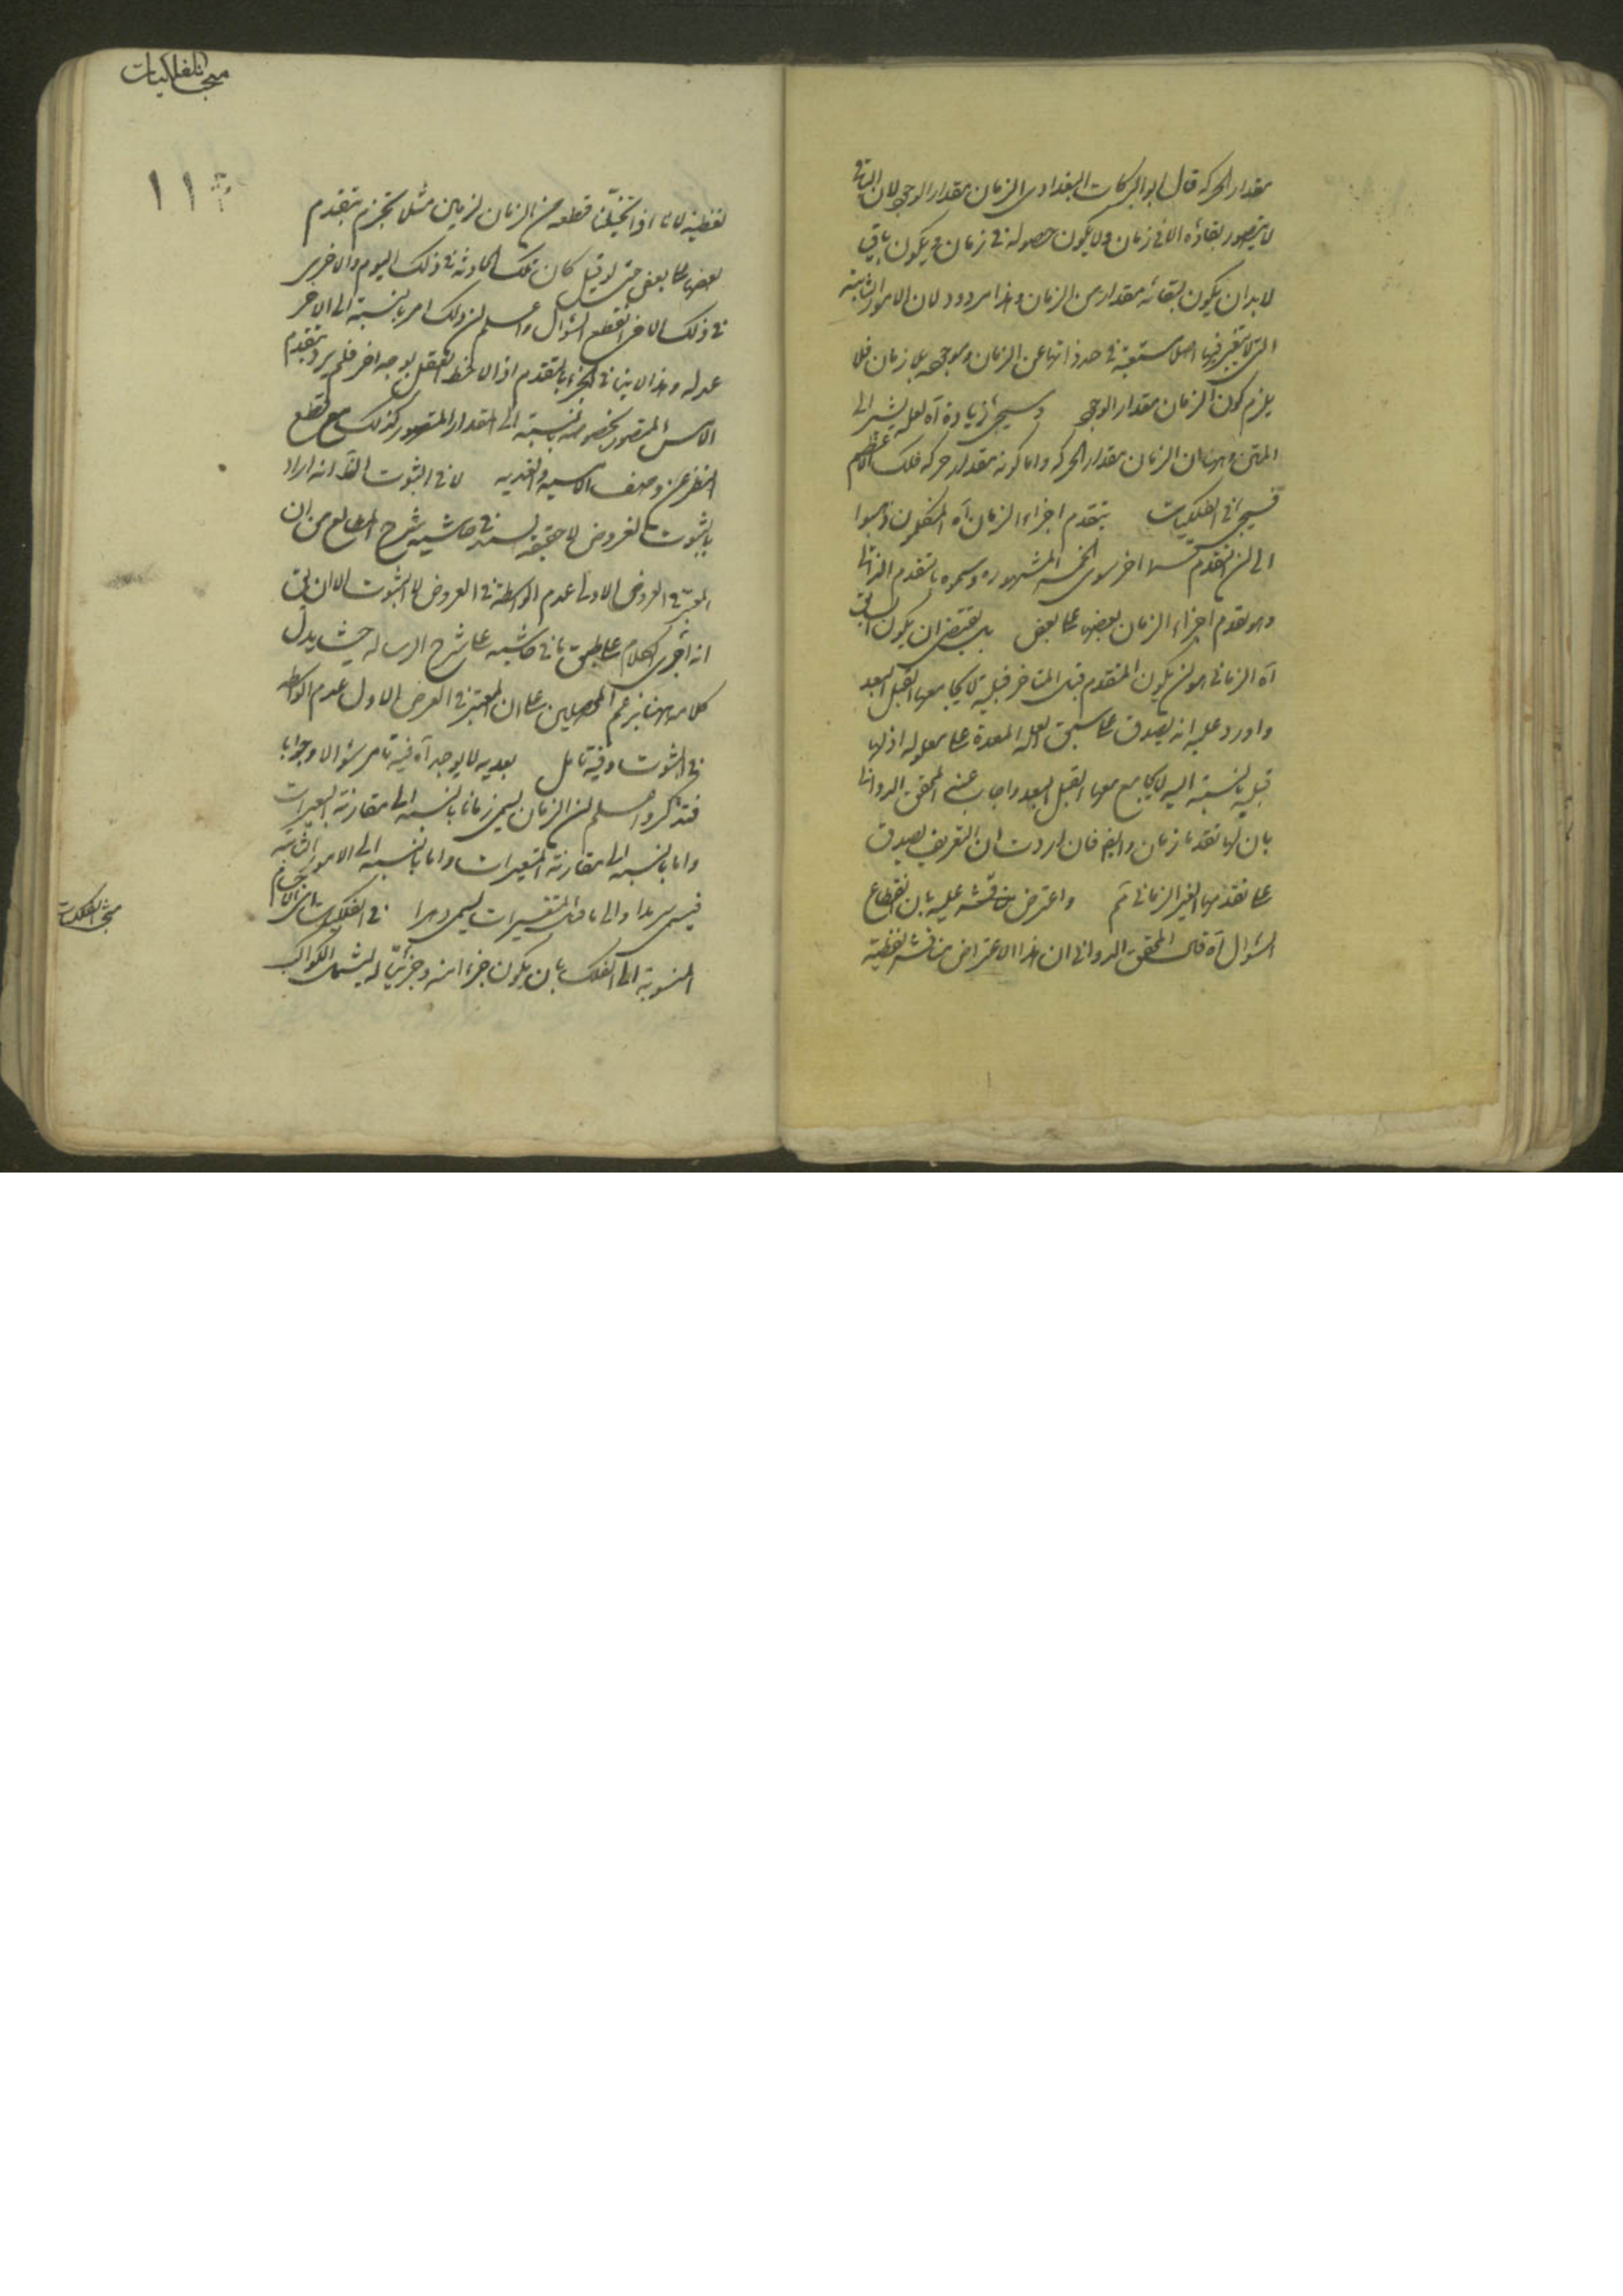 مقدار الحركة قال ابو البركات البغدادى الزمان مقدار الوجود لان الباقى
لا يتصور بقاؤه الا فى زمان ولا يكون حصوله فى زمان ويكون باقيا
لا بد ان يكون لبقائه مقدار من الزمان وهذا مردود لان الامور الثابتة
التى لا تغير فيها اصلا مستغنية فى حد ذاتها عن الزمان وموجودة بلا زمان فلا
يلزم كون الزمان مقدار الوجود وسيجئ زيادة آه لعله يشير الى
المتن وهو ان الزمان مقدار الحركة واما كونه مقدار حركة فلك الاعظم
فسيجئ فى الفلكيات بتقدم اجزاء الزمان آه المتكلمون ذهبوا
الى ان للتقدم قسما اخر سوى الخمسة المشهورة وسموه بالتقدم الذاتى
وهو تقدم اجزاء الزمان بعضها على بعض بل يقتضى ان يكون السابق
آه الزمانى هو ان يكون المتقدم قبل المتأخر قبلية لا يجامع معها القبل البعد
واورد عليه انه يصدق على سبق العلة المعدة على معلولها اذ لها
قبلية بالنسبة اليه لا يجامع معها القبل البعد واجاب عنه المحقق الدوانى
بان لها تقدما زمانى وايضا فان اردت ان التعريف يصدق
على تقدمها الغير الزمانى تم واعترض مناقشة عليه بان انقطاع
السؤال آه قال المحقق الدوانى ان هذا الاعتراض مناقشة لفظية
مبحث الفلكيات
لفظية لانا اذا تخيلنا قطعة من الزمان لزمان مثلا نجزم بتقدم
بعضها على بعض حتى لو قيل كان تلك الحادثة فى ذلك اليوم والاخرى
فى ذلك الاخر انقطع السؤال واعلم ان ذلك امر بالنسبة الى الاخر
عدله وهذا لا ينافى الجزم بالتقدم اذا لاحظ العقل بوجه اخر فلم يرد تقدم
الامس المتصور بخصوصه بالنسبة الى المقدار المتصور كذلك مع قطع
النظر عن وصف الامسية والغدية لا فى الثبوت الظ انه اراد
بالثبوت العروض لا حقيقة لسند فى حاشية شرح المطالع من ان
المعتبر فى العروض الاولى عدم الواسطة فى العروض لا الثبوت الا ان يق
انه اجرى الكلام على طبق ما فى حاشية على شرح الرسالة حيث يدل
كلامه هناك بزعم المحصلين على ان المعتبر فى العرض الاول عدم الواسطة
فى الثبوت وفيه تامل بعدية لا يوجد آه فيه ما مر سؤالا وجوابا
فتذكر واعلم ان الزمان يسمى زمانا بالنسبة الى مقارنة المتغيرات
واما بالنسبة الى مقارنة المتغيرات واما بالنسبة الى الامور الثابتة
فيسمى سرمدا والى ما قبل المتغيرات يسمى دهرا فى الفلكيات اى الاجسام
المنسوبة الى الفلك بان يكون جزء منه وجزئيا له ليشمل الكواكب
مبحث الفلكيات